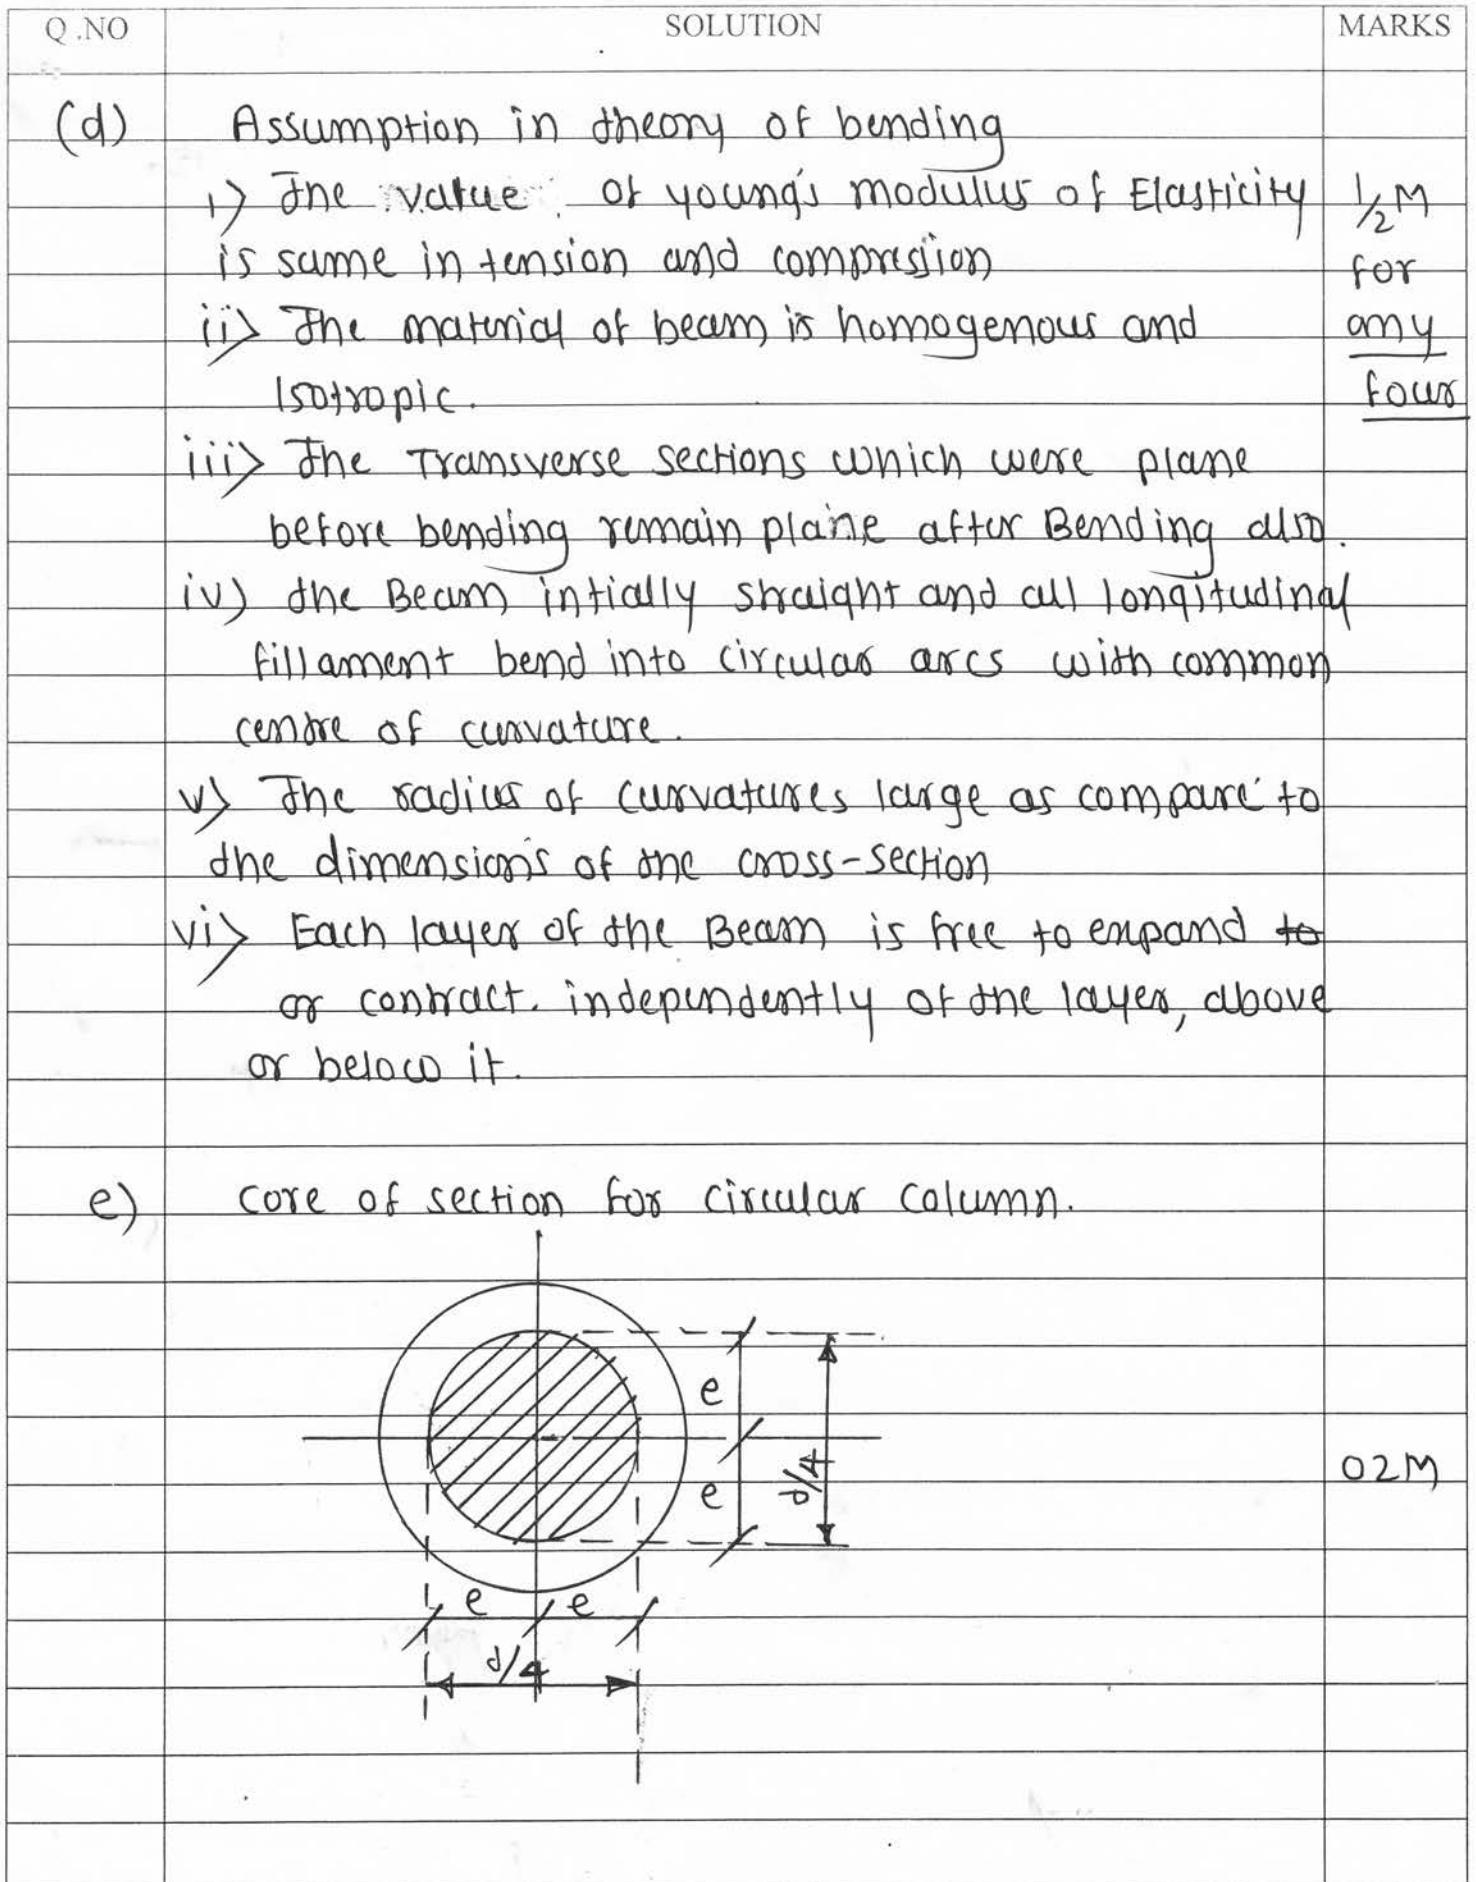 Q.NO SOLUTION MARKS
(d) Assumption in theory of bending
i) The value of young's modulus of Elasticity 1/2 M
is same in tension and compression for
ii) The material of beam is homogenous and any
Isotropic. four
iii) The Transverse sections which were plane
before bending remain plane after Bending also.
iv) the Beam intially straight and all longitudinal
fillament bend into circular arcs with common
centre of curvature.
v) The radius of curvatures large as compare to
the dimensions of the cross-section
vi) Each layer of the Beam is free to expand to
or contract. independently of the layer, above
or below it.
e) core of section for circular column.
e
d/4
e
02M
e e
d/4